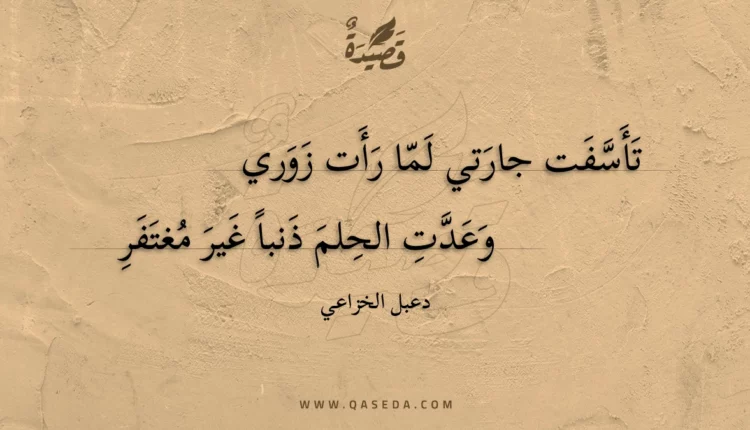 قَصِيدَةٌ
تَأَسَّفَت جارَتي لَمّا رَأَت زَوَري
وَعَدَّتِ الحِلمَ ذَنباً غَيرَ مُغتَفَرِ
دعبل الخزاعي
WWW.QASEDA.COM